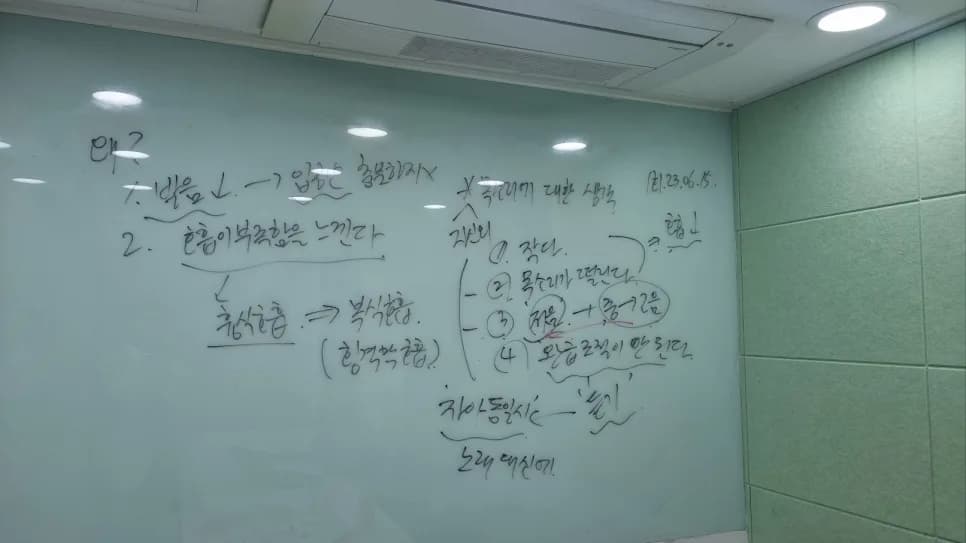 왜?
1. 발음↓ → 입모양 충분하지 X
2. 호흡이 부족함을 느낀다
흉식호흡 ⇒ 복식호흡.
(횡격막호흡)
* 목소리에 대한 생각
23.06.15.
① 작다.
② 목소리가 떨린다
⇒ 호흡↓
③ 저음 → 중→고음
④ 완급조절이 안 된다
'자아동일시' — '듣기'
노래 대신에